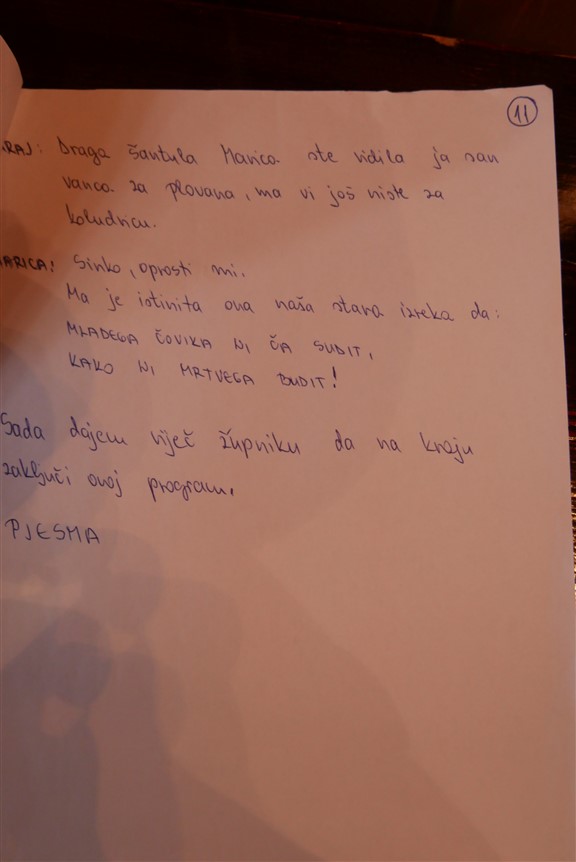 11
RAJ: Draga šantula Marica ste vidila ja san
vanca za plovana, ma vi još niste za
koludricu.
ARICA: Sinko, oprosti mi.
Ma je istinita ova naša stara izreka da:
MLADEGA ČOVIKA NI ČA SUDIT,
KAKO NI MRTVEGA BUDIT!
Sada dajem riječ župniku da na kraju
zaključi ovaj program.
PJESMA